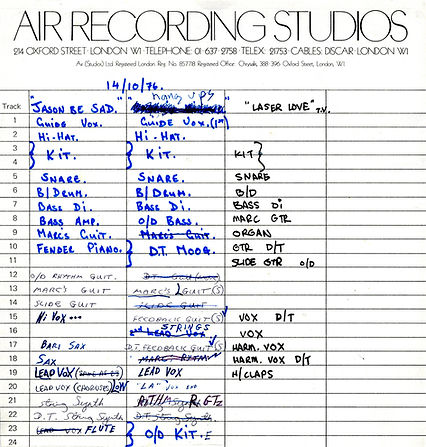 AIR RECORDING STUDIOS
214 OXFORD STREET · LONDON W1 · TELEPHONE: 01-637 2758 · TELEX: 21753 · CABLES: DISCAR · LONDON W1
Air (Studios) Ltd. Registered London Reg. No. 857718 Registered Office: Chrysalis, 388-396 Oxford Street, London, W1.
14/10/76.
hang ups
Track "JASON BE SAD." "LASER LOVE" T.V.
1 GUIDE VOX. GUIDE VOX. (1st)
2 HI-HAT. HI-HAT.
3
KIT. KIT. KIT
4
5 SNARE. SNARE. SNARE
6 B/DRUM. B/DRUM. B/D
7 BASS DI. BASS DI. BASS DI
8 BASS AMP. O/D BASS. MARC GTR
9 MARC'S GUIT. MARC'S GUIT. ORGAN
10 FENDER PIANO. D.T. MOOG. GTR D/T
11 SLIDE GTR O/D
12 O/D RHYTHM GUIT. D.T.
13 MARC'S GUIT MARC'S GUIT (S)
14 SLIDE GUIT SLIDE GUIT
15 HI VOX FEEDBACK GUIT (S) VOX D/T
STRINGS
16 2nd LEAD VOX VOX
17 BARI SAX D.T. FEEDBACK GUIT (S) HARM. VOX
18 SAX MARC HARM. VOX D/T
19 LEAD VOX LEAD VOX H/CLAPS
20 LEAD VOX (CHORUSES) LOW "LA" VOX
21 string Synth RITH GTR
22 D.T. String Synth D.T. String Synth
23 LEAD VOX FLUTE
O/D KIT.
24